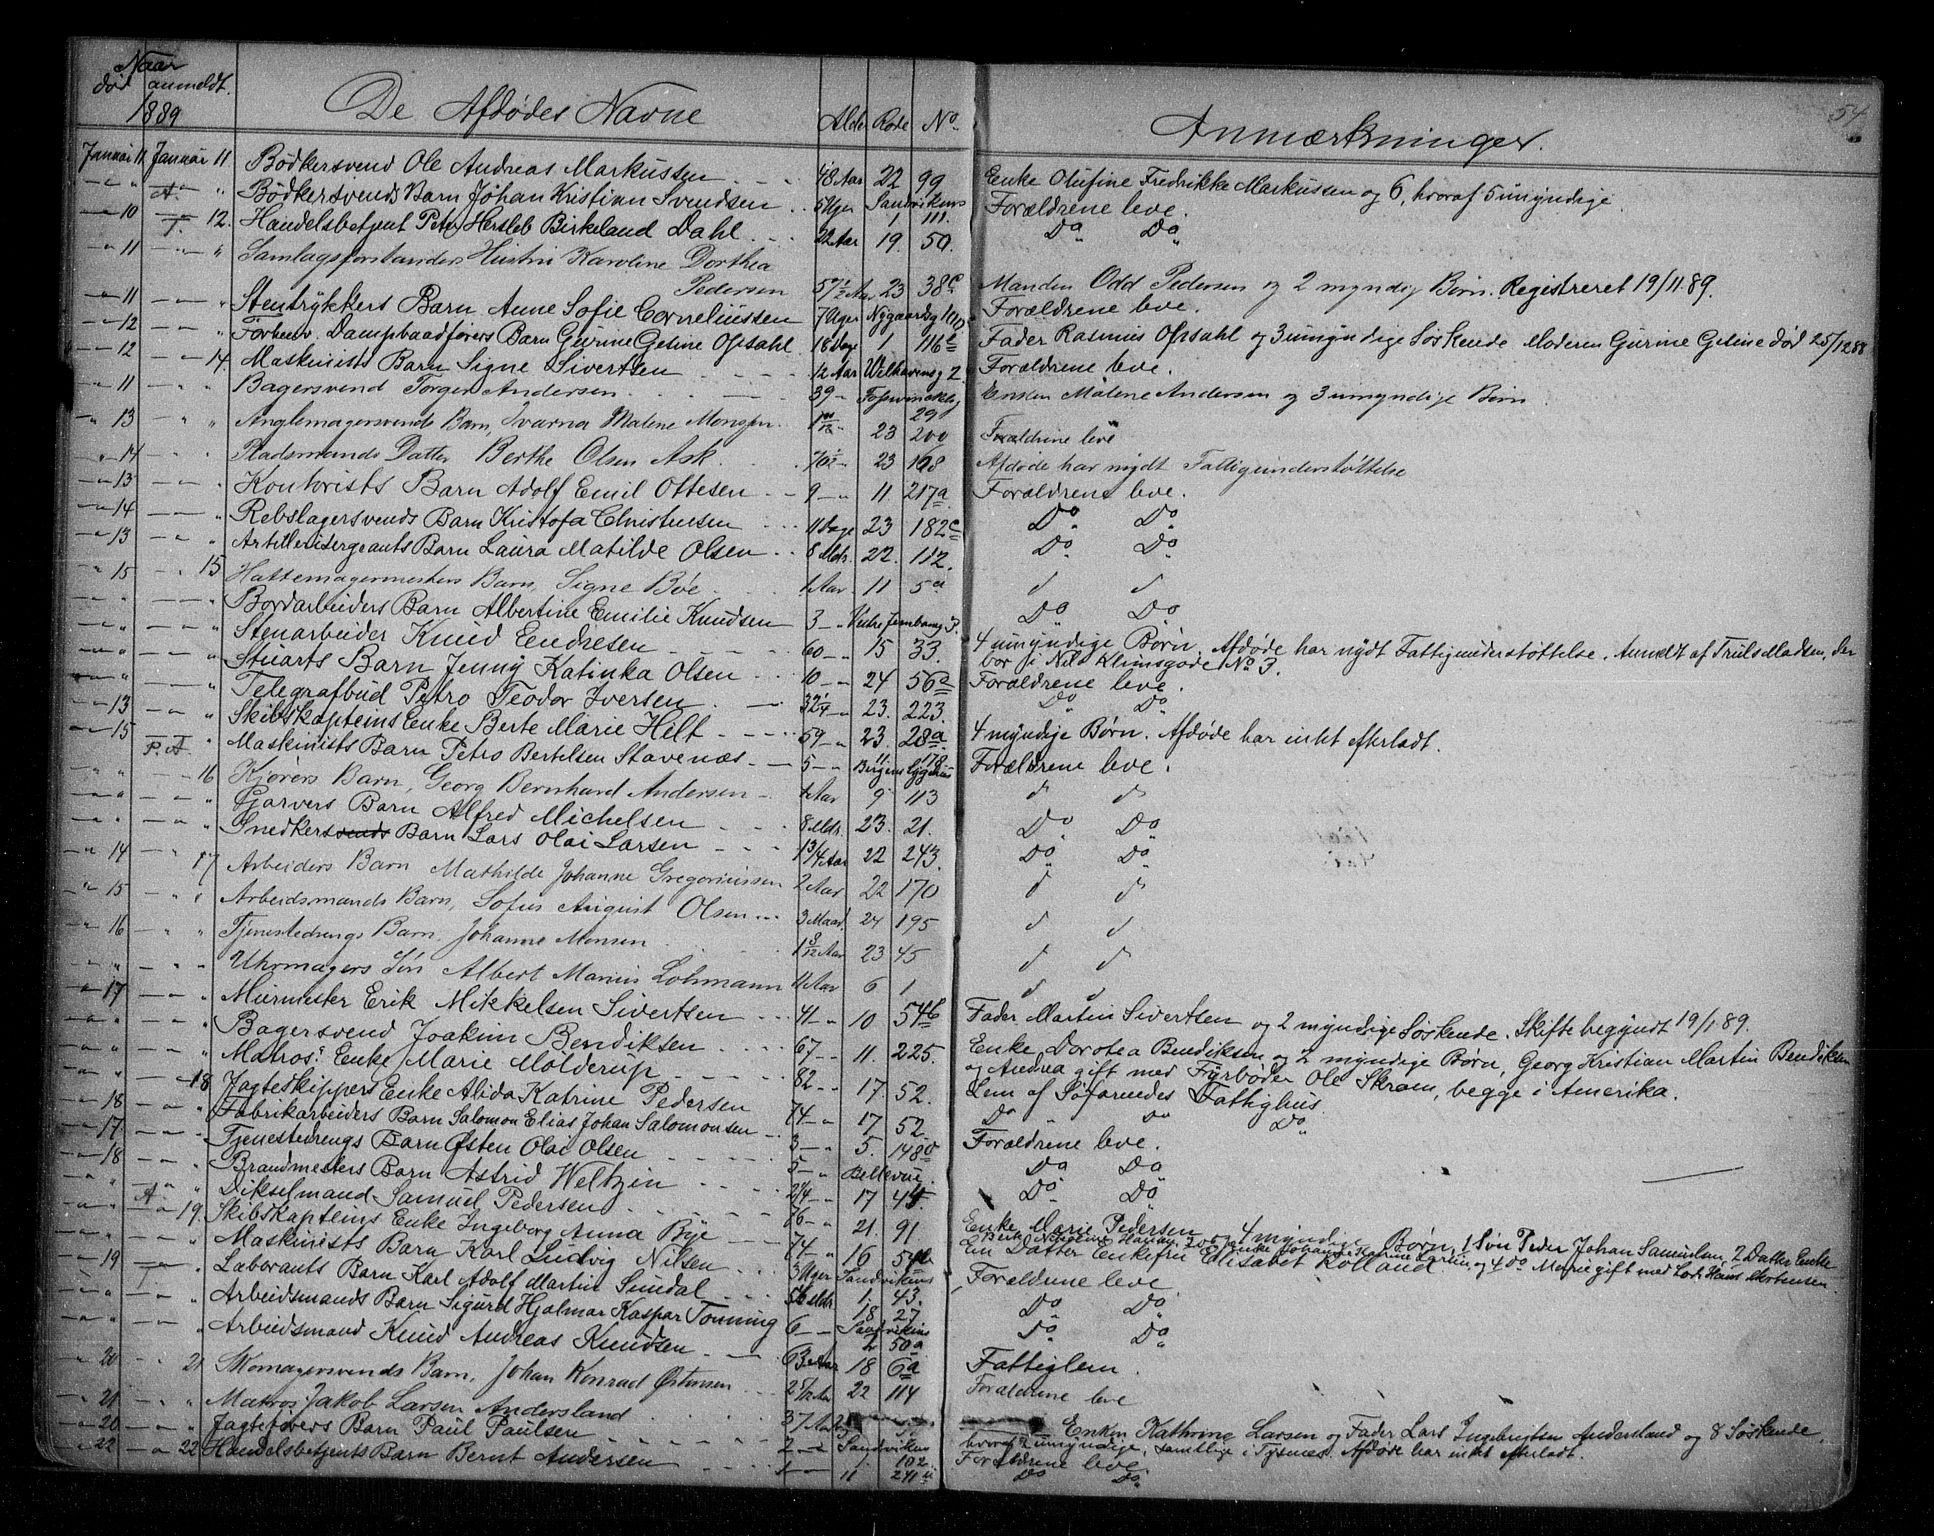 54
Naar
død anmeldt.
1889
De Afdødes Navne Alder Rode No. Anmærkninger.
Januar 11 Januar 11 Bødkersvend Ole Andreas Markussen 48 Aar 22 99 Enke Olufine Fredrikke Markussen og 6, hvoraf 5 umyndige
" A. " Bødkersvends Barn Johan Kristian Svendsen 5 Uger Sandvikens 1 111. Forældrene leve.
10 T. 12. Handelsbetjent Peter Hersleb Birkeland Dahl 22 Aar 19. 50. Do Do
11 " Samlagsforstanders Hustru Karoline Dorthea
Pedersen 57 1/2 Aar 23 38c Manden Odd Pedersen og 2 myndig Børn. Registreret 19/11.89.
11 " Stentrykkers Barn Anne Sofie Corneliussen 7 Uger Nygaardsg Forældrene leve.
12 " Forhenv. Dampbaadførers Barn Gurine Geline Opsahl 18 Dage 1 116 Fader Rasmus Opsahl og 3 umyndige Søskende Moderen Gurine Geline død 25/12 88
12 14. Maskinists Barn Signe Sivertsen 12 Aar Welhavensg 2. Forældrene leve.
11 " Bagersvend Torger Andersen 39 Enken Malene Andersen og 3 umyndige Børn
13 " Barn, Malene Monsen 23 200 Forældrene leve
14 " Pladsmands Datter Berthe Olsen Ask 70 1/2 23 168 Afdøde har nydt Fattigunderstøttelse
13 " Kontorists Barn Adolf Emil Ottesen 9 11 217a Forældrene leve.
14 " Rebslagersvends Barn Kristofa Christensen 11 Dage 23 182c Do Do
13 " Artillerisergeants Barn Laura Matilde Olsen 8 Mdr. 22. 112. Do Do
15 15 Hattemagermesters Barn, Signe Bøe 1 Aar 11 5a d d
" " Bordarbeiders Barn Albertine Emilie Knudsen 3 Vestre 3. Do Do
" " Stenarbeider Knud Endresen 60 15 33. 4 umyndige Børn. Afdøde har nydt Fattigunderstøttelse. Anmdt af Truls Madsen, der
bor i Nils Klimsgade No 3.
" " Stuarts Barn Jenny Katinka Olsen 10 24 56a Forældrene leve.
" " Telegrafbud Petro Teodor Iversen 32 1/4 23. 223. Do Do
13 " Skibskapteins Enke Berte Marie Helt 59 23. 28a. 4 myndige Børn. Afdøde har intet efterladt.
15 P. A. " Maskinists Barn Petro Bertelsen Stavenæs 5 Bergens Sygehus Forældrene leve.
" 16 Kjørers Barn, Georg Bernhard Andersen Aar 9 113 d d
" " Garvers Barn Alfred Michelsen 8 Mdr. 23. 21. Do Do
" " Snedkersvends Barn Lars Olai Larsen 1 3/4 Aar 22 243. Do Do
14 17 Arbeiders Barn Mathilde Johanne Gregoriussen 2 Aar 22 170 d d
15 " Arbeidsmands Barn, Sofus August Olsen 3 Maad. 24 195 d d
16 " Tjenestedrengs Barn, Johanne Monsen 1 8/12 Aar 23 45 d d
" " Uhrmagers Søn Albert Marius Lohmann 11 Aar 6 1 d d
17 " Murmester Erik Mikkelsen Sivertsen 41 10 54b Fader Martin Sivertsen og 2 myndige Søskende. Skifte begyndt 19/1.89.
" " Bagersvend Joakim Bendiksen 67 11. 225. Enke Dorotea Bendiksen og 2 myndige Børn, Georg Kristian Martin Bendiksen
og Andrea gift med Fyrbøder Ole Skram, begge i Amerika.
" " Matros' Enke Marie Molderup 82 17. 52. Lem af Søfarendes Fattighus
" 18 Jagteskippers Enke Alida Katrine Pedersen 74 17 52. Do Do Do
18 " Fabrikarbeiders Barn Salomon Elias Johan Salomonsen 3 5. 148d Forældrene leve.
17 " Tjenestedrengs Barn Østen Olai Olsen 5 Bellevue. Do Do
18 " Brandmesters Barn Astrid Weltzin 2 1/4 17 44. Do Do
" A " Dikselmand Samuel Pedersen 76 21. 91 Enke Marie Pedersen 4 myndige Børn, 1 Søn Peder Johan Samuelsen, 2 Datter Enke
Johanne Karine Larsen, og 4 Do Marie gift med Hans Mortensen
" 19. Skibskapteins Enke Ingeborg Anna Bye 74 16 En Datter Enkefru Elisabet Rolland
" " Maskinists Barn Karl Ludvig Nilsen 3 Uger Sandvikens 1. 43. Forældrene leve
19 T. " Laborants Barn Karl Adolf Martin Sundal Mdr. 18 27 Do Do
" " Arbeidsmands Barn Sigurd Hjalmar Kaspar Tonning 6 Sandvikens 2 50a Do Do
" " Arbeidsmand Knud Andreas Knudsen 63 Aar 18 6a Fattiglem.
20 21 Skomagersvends Barn, Johan Konrad Østensen 2 Aar 22 114 Forældrene leve
21 " Matros Jakob Larsen Andersland 37 Aar Enken Kathrine Larsen og Fader Lars Ingebrigtsen Andersland og 8 Søskende,
hvoraf 2 umyndige, samtlige i Tysnæs. Afdøde har intet efterladt.
20 " Jagteførers Barn Paul Paulsen 2 Sandviken 1. 102. Forældrene leve.
22 22 Handelsbetjents Barn Bernt Andersen 1 11 241 Do Do